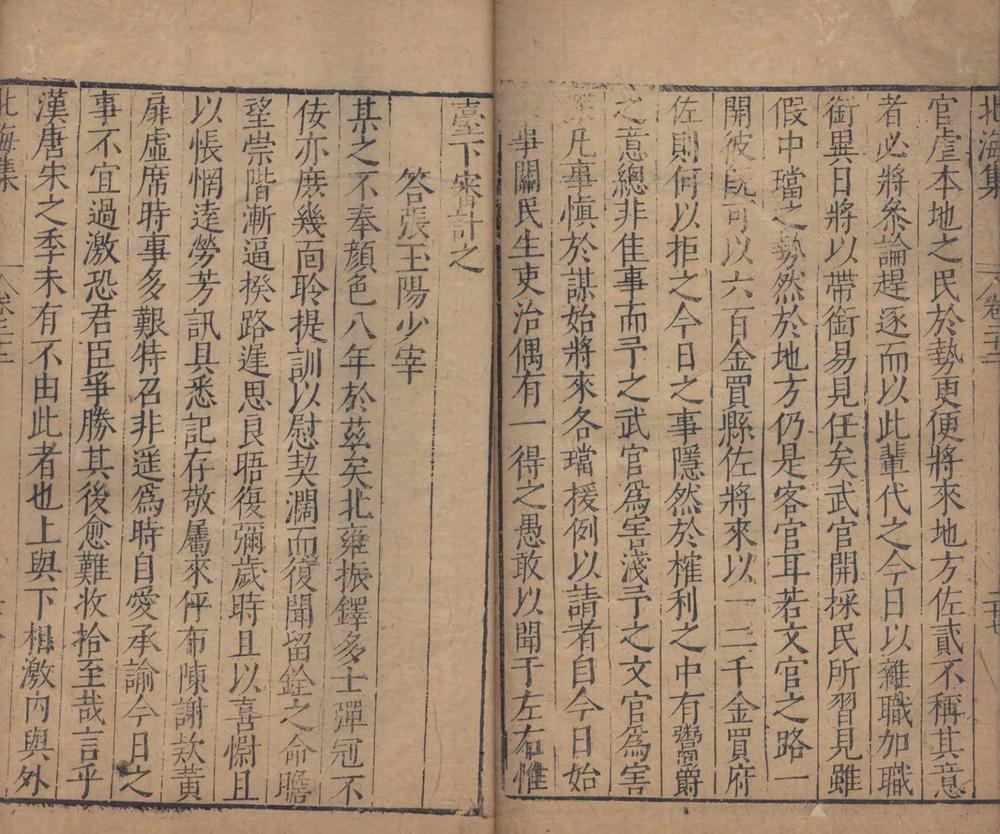 北海集
卷三十三
官虐本地之民於勢更便將來地方佐貳不稱其意
者必將叅論趕逐而以此輩代之今日以雜職加職
銜異日將以帶銜易見任矣武官開採民所習見雖
假中璫之勢然於地方仍是客官耳若文官之路一
開彼既可以六百金買縣佐將來以一二千金買府
佐則何以拒之今日之事隱然於榷利之中有鬻爵
之意總非隹事而予之武官爲害淺予之文官爲害
凡事慎於謀始將來各璫援例以請者自今日始
事關民生吏治偶有一得之愚敢以聞于左右惟
臺下審計之
答張玉陽少宰
某之不奉顔色八年於茲矣北雍振鐸多士彈冠不
佞亦庶幾面聆提訓以慰契濶而復聞留銓之命瞻
望崇階漸逼揆路遲思良晤復彌歲時且以喜慰且
以悵惘逺勞芳訊具悉記存敬屬來伻布陳謝欵黃
扉虛席時事多艱特召非遥爲時自愛承諭今日之
事不宜過激恐君臣爭勝其後愈難收拾至哉言乎
漢唐朱之季未有不由此者也上與下相激内與外
北海集